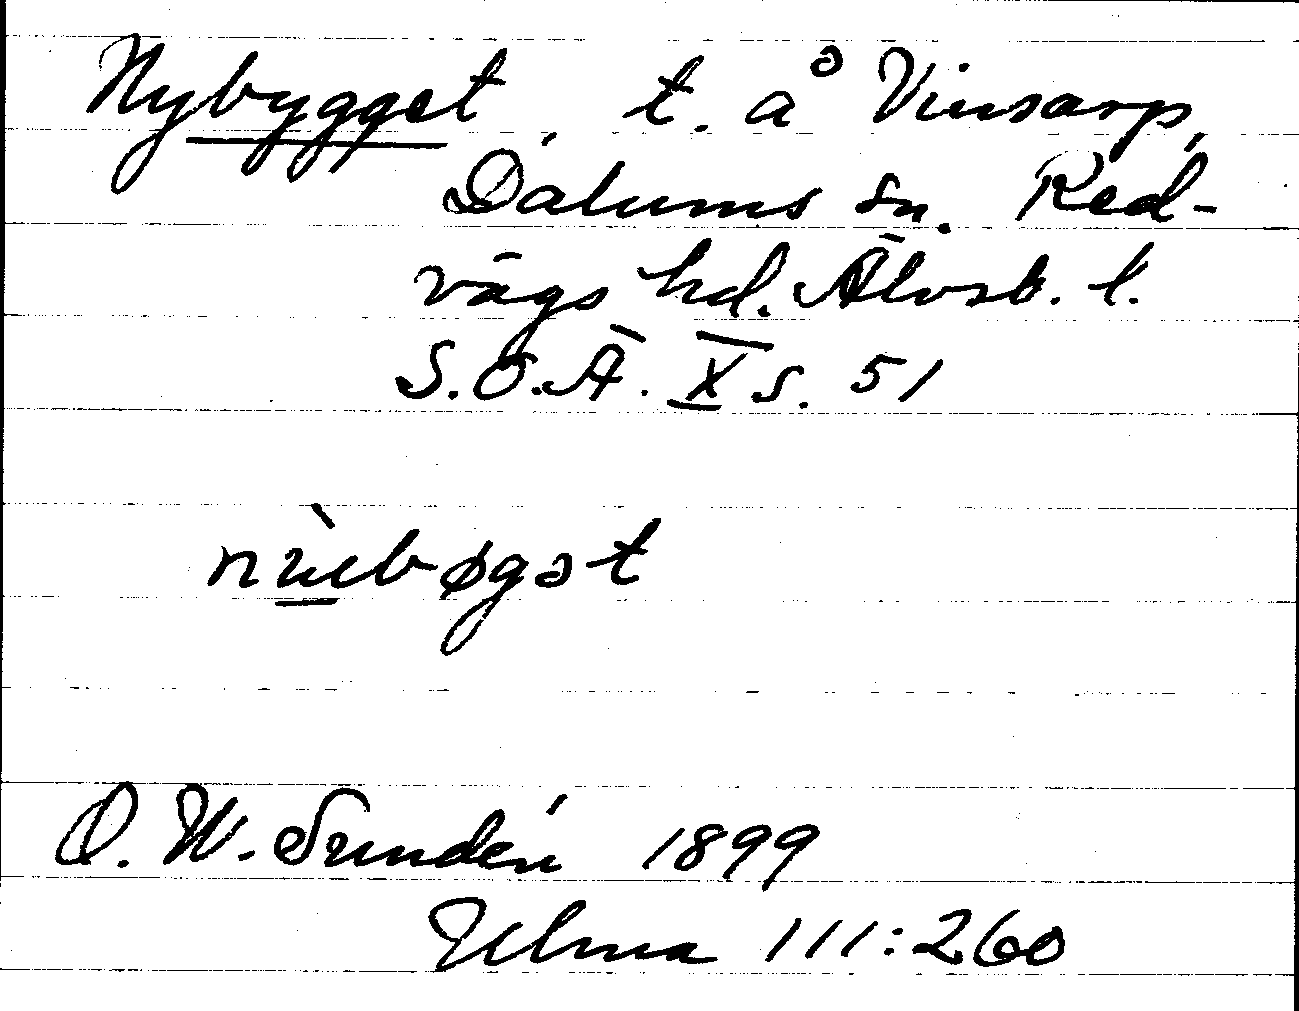 Nybygget, t. å Vinsarp,
Dalums sn. Red-
vägs hd. Älvsb. l.
S.O.Ä. X s. 51
nùebøgət
O. W. Sundén 1899
Ulma 111:260